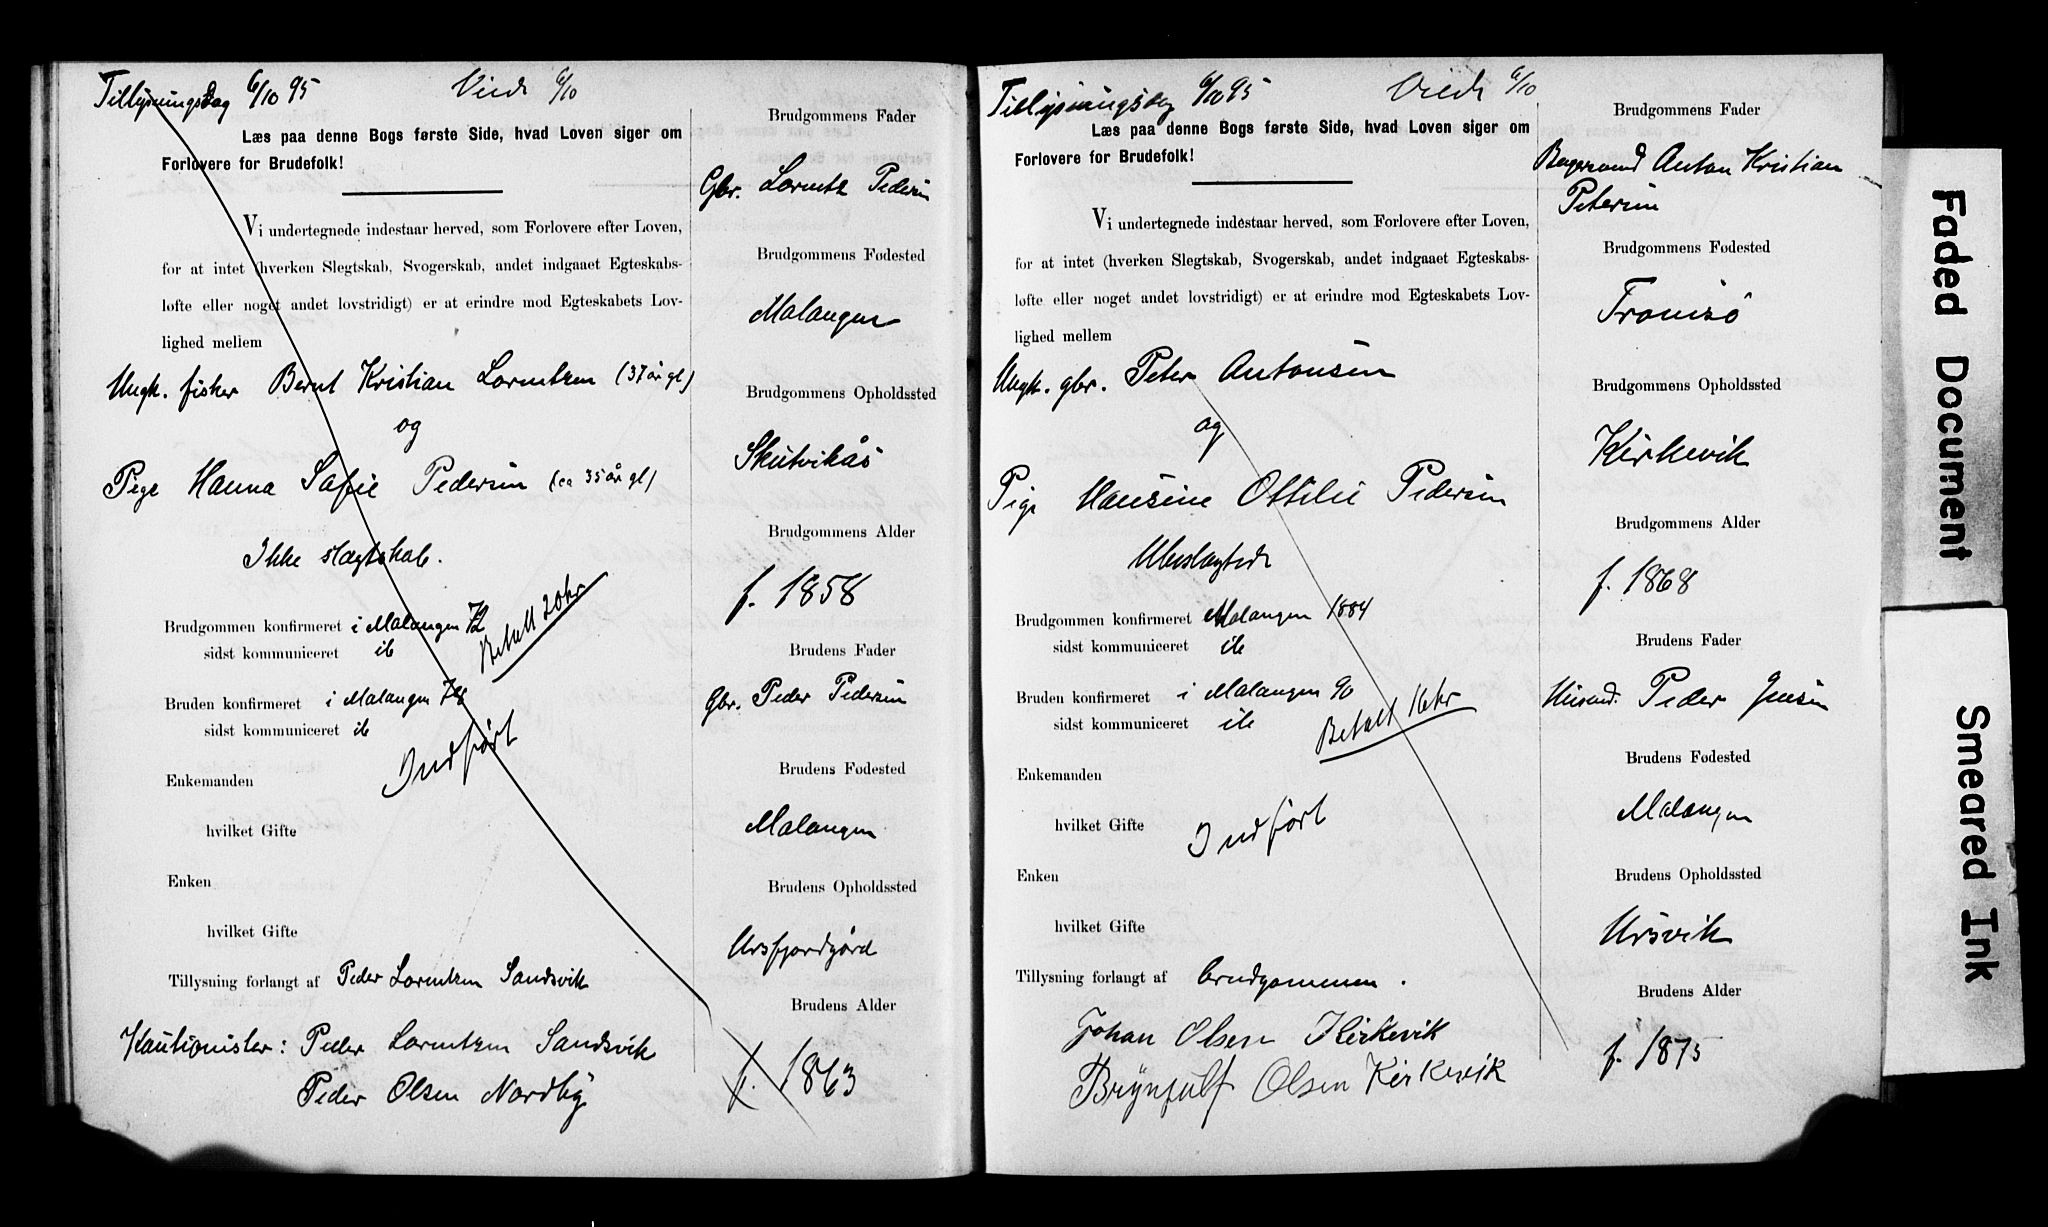 Tillysningsdag 6/10 95 Viede 6/10
Læs paa denne Bogs første Side, hvad Loven siger om
Forlovere for Brudefolk!
Vi undertegnede indestaar herved, som Forlovere efter Loven,
for at intet (hverken Slegtskab, Svogerskab, andet indgaaet Egteskabs-
løfte eller noget andet lovstridigt) er at erindre mod Egteskabets Lov-
lighed mellem
Ungk. fisker Bernt Kristian Lorentzen (37 år gl)
og
Pige Hanna Sofie Pedersen (ca 35 år gl)
Ikke slægtskab.
Brudgommen konfirmeret i Malangen 72
sidst kommuniceret ib
Betalt 20 kr
Bruden konfirmeret i Malangen
sidst kommuniceret ib
Indført
Enkemanden
hvilket Gifte
Enken
hvilket Gifte
Tillysning forlangt af Peder Lorentzen Sandsvik
Kautionister: Peder Lorentzen Sandsvik
Peder Olsen Nordby
Brudgommens Fader
Gbr. Lorentz Pedersen
Brudgommens Fødested
Malangen
Brudgommens Opholdssted
Skutvikås
Brudgommens Alder
f. 1858
Brudens Fader
Gbr. Peder Pedersen
Brudens Fødested
Malangen
Brudens Opholdssted
Ursfjordgård
Brudens Alder
f. 1863
Tillysningsdag 6/10 95 Viede 6/10
Læs paa denne Bogs første Side, hvad Loven siger om
Forlovere for Brudefolk!
Vi undertegnede indestaar herved, som Forlovere efter Loven,
for at intet (hverken Slegtskab, Svogerskab, andet indgaaet Egteskabs-
løfte eller noget andet lovstridigt) er at erindre mod Egteskabets Lov-
lighed mellem
Ungk. gbr. Peter Antonsen
og
Pige Hansine Ottilie Pedersen
Ubeslægtede
Brudgommen konfirmeret Malangen 1884
sidst kommuniceret ib
Bruden konfirmeret i Malangen 90
sidst kommuniceret ib
Betalt 16 kr
Enkemanden
hvilket Gifte
Indført
Enken
hvilket Gifte
Tillysning forlangt af brudgommen.
Johan Olsen Kirkevik
Brynjulf Olsen Kirkevik
Brudgommens Fader
Anton Kristian
Petersen
Brudgommens Fødested
Tromsø
Brudgommens Opholdssted
Kirkevik
Brudgommens Alder
f. 1868
Brudens Fader
Husmd. Peder Jensen
Brudens Fødested
Malangen
Brudens Opholdssted
Ursvik
Brudens Alder
f. 1875
Faded Document
Smeared Ink